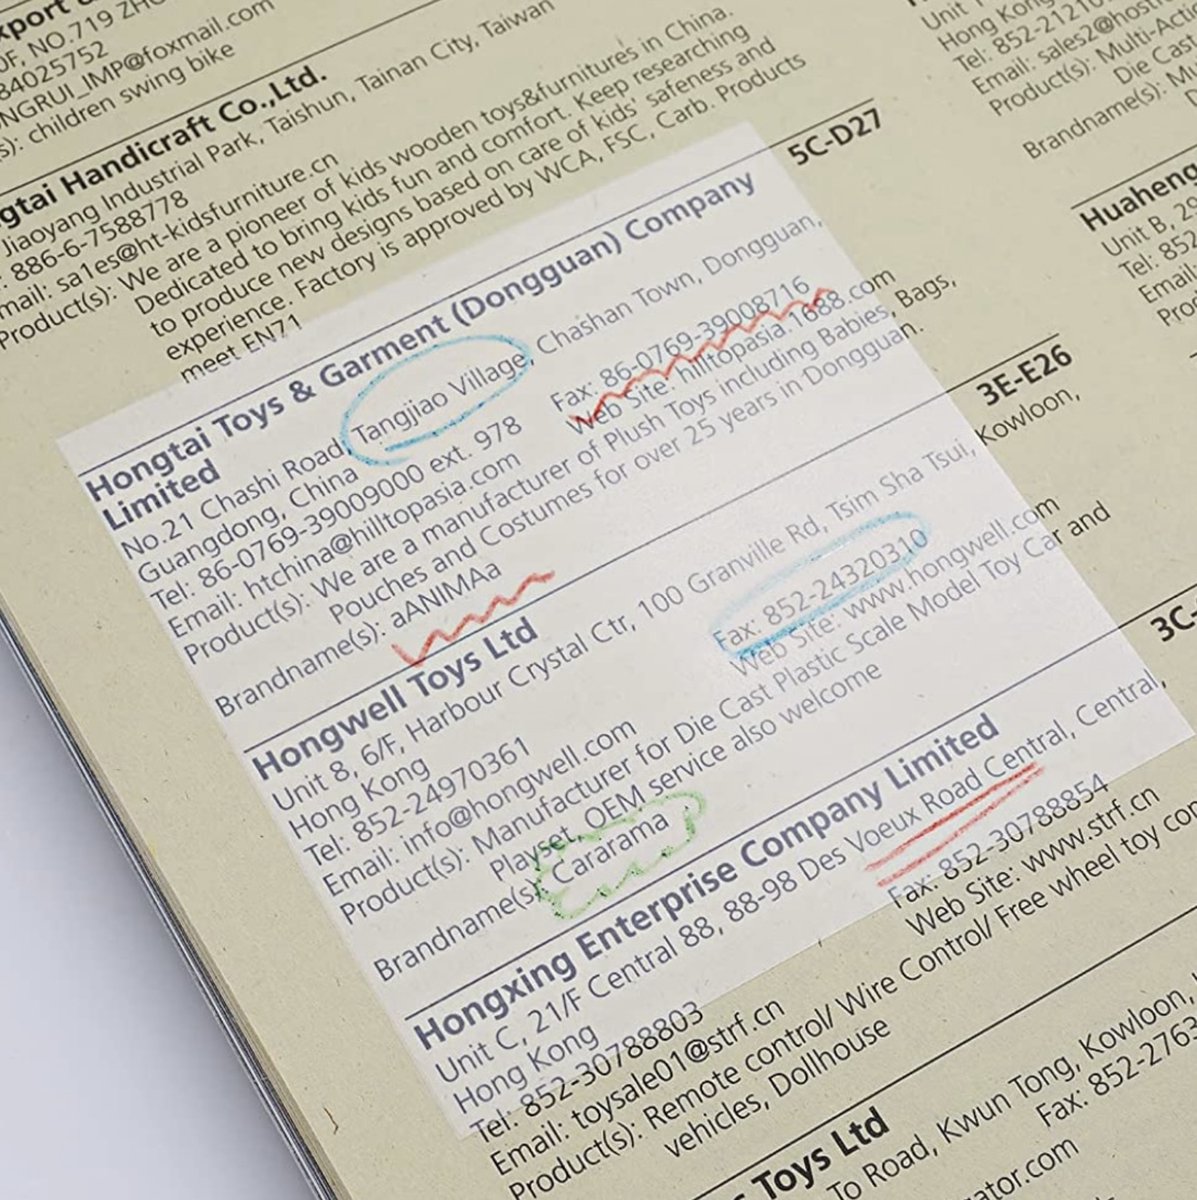 F, NO.719
84025752
NGRUI_IMP@foxmail.com
s): children swing bike
gtai Handicraft Co.,Ltd.
Jiaoyang Industrial Park, Taishun, Tainan City, Taiwan
: 886-6-7588778
mail: sa1es@ht-kidsfurniture.cn
Product(s): We are a pioneer of kids wooden toys&furnitures in China.
Dedicated to bring kids fun and comfort. Keep researching
to produce new designs based on care of kids' safeness and
experience. Factory is approved by WCA, FSC, Carb. Products
meet EN71
5C-D27
Hongtai Toys & Garment (Dongguan) Company
Limited
No.21 Chashi Road, Tangjiao Village, Chashan Town, Dongguan,
Guangdong, China
Tel: 86-0769-39009000 ext. 978 Fax: 86-0769-39008716
Email: htchina@hilltopasia.com Web Site: hilltopasia.1688.com
Product(s): We are a manufacturer of Plush Toys including Babies, Bags,
Pouches and Costumes for over 25 years in Dongguan.
Brandname(s): aANIMAa
3E-E26
Hongwell Toys Ltd
Unit 8, 6/F, Harbour Crystal Ctr, 100 Granville Rd, Tsim Sha Tsui, Kowloon,
Hong Kong
Tel: 852-24970361 Fax: 852-24320310
Email: info@hongwell.com Web Site: www.hongwell.com
Product(s): Manufacturer for Die Cast Plastic Scale Model Toy Car and
Playset, OEM service also welcome
Brandname(s): Cararama
3C-
Hongxing Enterprise Company Limited
Unit C, 21/F Central 88, 88-98 Des Voeux Road Central, Central,
Hong Kong
Tel: 852-30788803 Fax: 852-30788854
Email: toysale01@strf.cn Web Site: www.strf.cn
Product(s): Remote control/ Wire Control/ Free wheel toy
vehicles, Dollhouse
Toys Ltd
To Road, Kwun Tong, Kowloon,
Fax: 852-2763
ator.com
Unit
Hong Kong
Tel: 852-2121
Email: sales2@
Product(s): Multi-Acti
Die Cast
Brandname(s): Mu
Huaheng
Unit B, 29
Tel: 852
Email
Pro